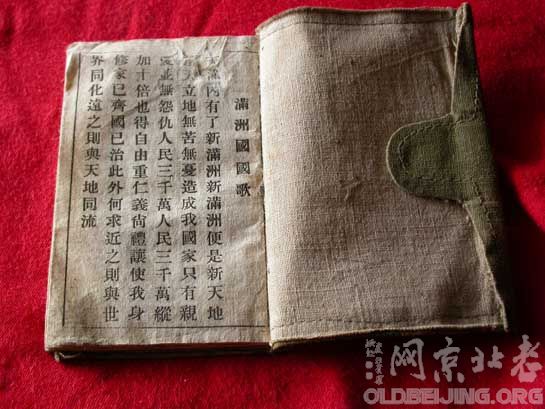 滿洲國國歌
天地內有了新滿洲新滿洲便是新天地
頂天立地無苦無憂造成我國家只有親
愛並無怨仇人民三千萬人民三千萬縱
加十倍也得自由重仁義尙禮讓使我身
修家已齊國已治此外何求近之則與世
界同化遠之則與天地同流
老北京网
OLDBEIJING.ORG